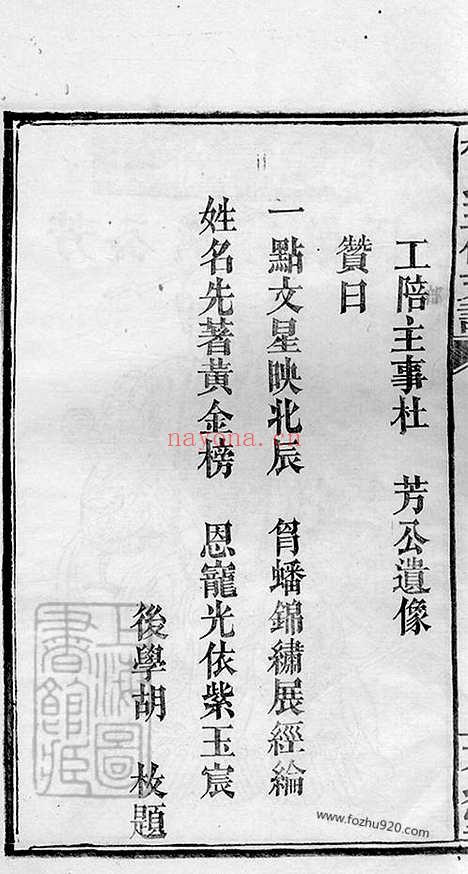 工陪主事杜　芳公遺像
贊曰
一點文星映北辰　胷蟠錦繡展經綸
姓名先著黃金榜　恩寵光依紫玉宸
後學胡　枚題
上海圖書館藏
nayona.cn
www.fozhu920.com